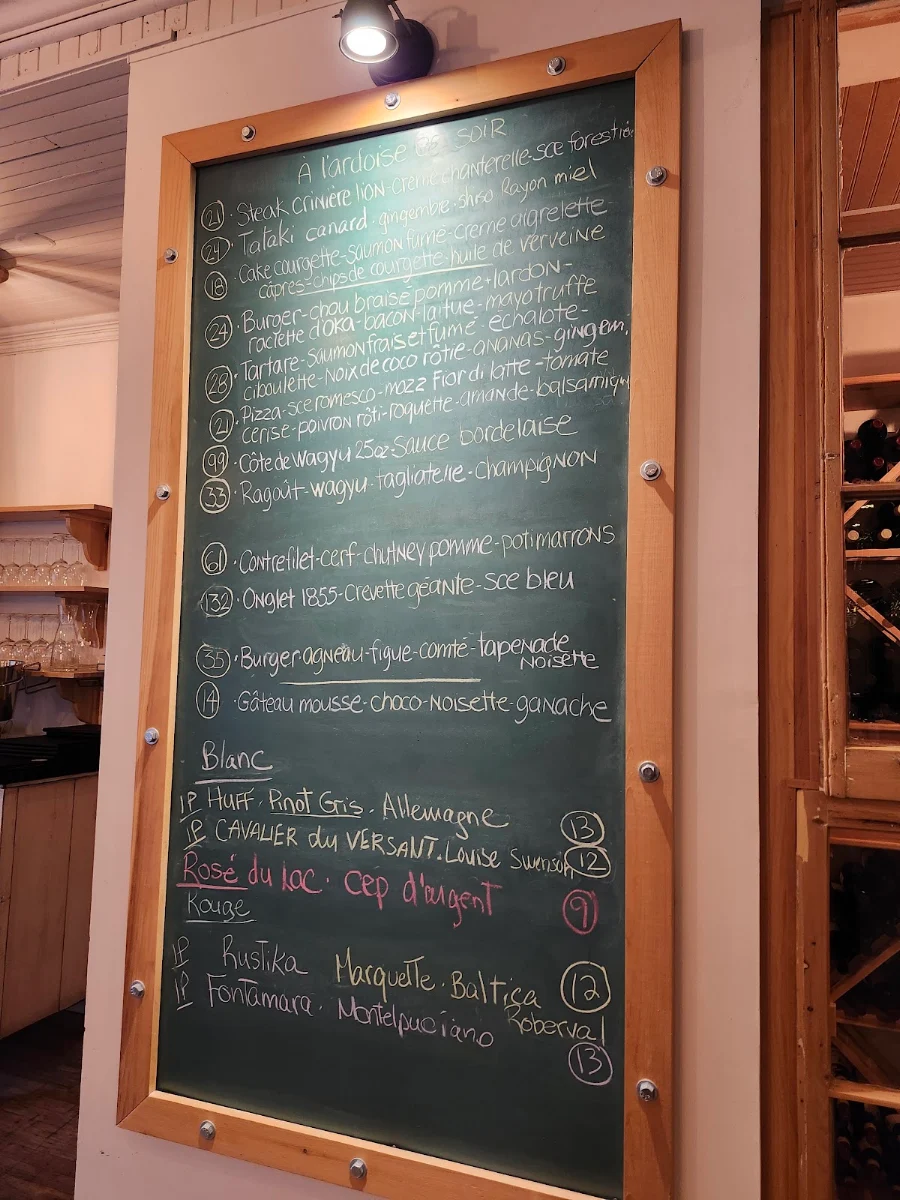 À l'ardoise ce soir
21 · Steak crinière lion-creme chanterelle-sce forestiè
24 · Tataki canard-gingembre-shso Rayon miel
18 · Cake courgette-saumon fumé-creme aigrelette
câpres-chips de courgette-huile de verveine
24 · Burger-chou braisé pomme+lardon-
raclette d'oka-bacon-laitue-mayo truffe
28 · Tartare-saumon frais et fumé-échalote-
ciboulette-noix de coco rôtie-ananas-gingem,
21 · Pizza-sce romesco-mozz Fior di latte-tomate
cerise-poivron rôti-roquette-amande-balsamiqu
99 · Côte de wagyu 25oz-Sauce bordelaise
33 · Ragoût-wagyu-tagliatelle-champignon
61 · Contrefilet-cerf-chutney pomme-potimarrons
132 · Onglet 1855-Crevette géante-Sce bleu
35 · Burger-agneau-figue-comté-tapenade
noisette
14 · Gâteau mousse-choco-noisette-ganache
Blanc
IP Huff. Pinot Gris. Allemagne 13
IP CAVALIER du VERSANT. Louise Swenson 12
Rosé du Lac. Cep d'argent 9
Rouge
IP Rustika Marquette. Baltica 12
Roberval
IP Fontamara. Montelpuciano 13